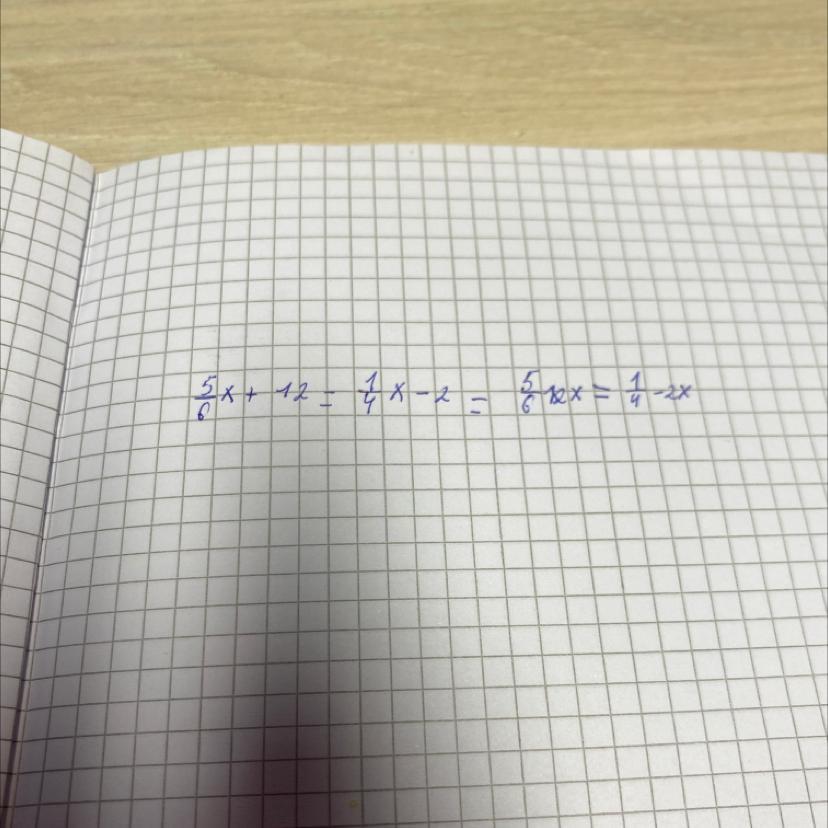 5/6 x + 12 = 1/4 x - 2 = 5/6 12x = 1/4 - 2x